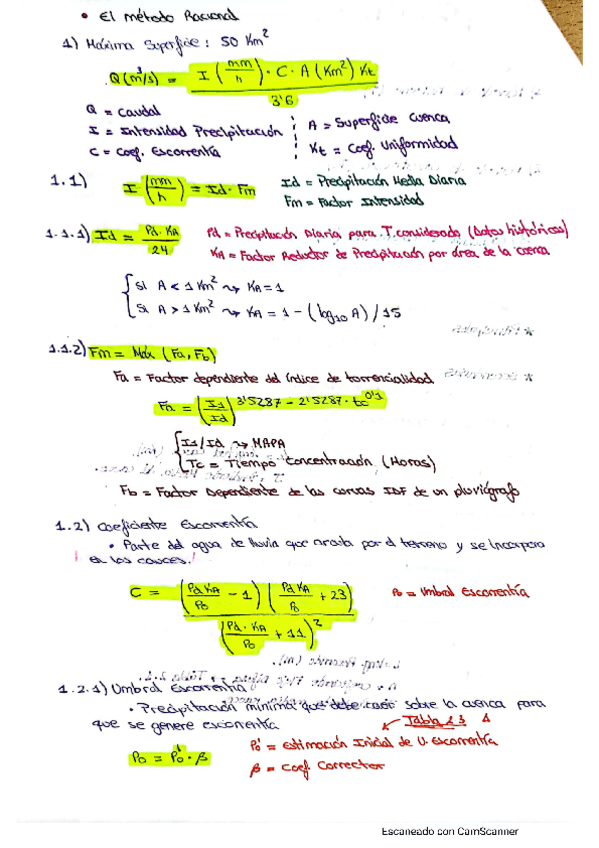 • El método Racional
1) Máxima Superficie: 50 Km²
Q(m³/s) = I (mm/h) · C · A (Km²) Kt / 3'6
Q = Caudal
I = Intensidad Precipitación
C = Coef. Escorrentía
A = Superficie Cuenca
Kt = Coef. Uniformidad
1.1) I (mm/h) = Id · Fm
Id = Precipitación Media Diaria
Fm = Factor Intensidad
1.1.1) Id = Pd · KA / 24
Pd = Precipitación Diaria para T. considerado (Datos históricos)
KA = Factor Reductor de Precipitación por área de la cuenca
Si A < 1 Km² ⇝ KA = 1
Si A > 1 Km² ⇝ KA = 1 - (log10 A) / 15
1.1.2) Fm = Máx (Fa, Fb)
Fa = Factor dependiente del índice de torrencialidad
Fa = (I1/Id)^3'5287 - 2'5287 · tc^0'1
I1/Id ⇝ MAPA
Tc = Tiempo Concentración (Horas)
Fb = Factor Dependiente de las curvas IDF de un pluviógrafo
1.2) Coeficiente Escorrentía
• Parte del agua de lluvia que por el terreno y se incorpora
en los cauces.
C = (Pd KA/Po - 1) (Pd KA/Po + 23) / (Pd · KA/Po + 11)²
Po = Umbral Escorrentía
1.2.1) Umbral Escorrentía
• Precipitación mínima que debe sobre la cuenca para
que se genere escorrentía
Tabla 2.3
Po = Po' · β
Po' = Estimación Inicial de U. Escorrentía
β = Coef. Corrector
Escaneado con CamScanner